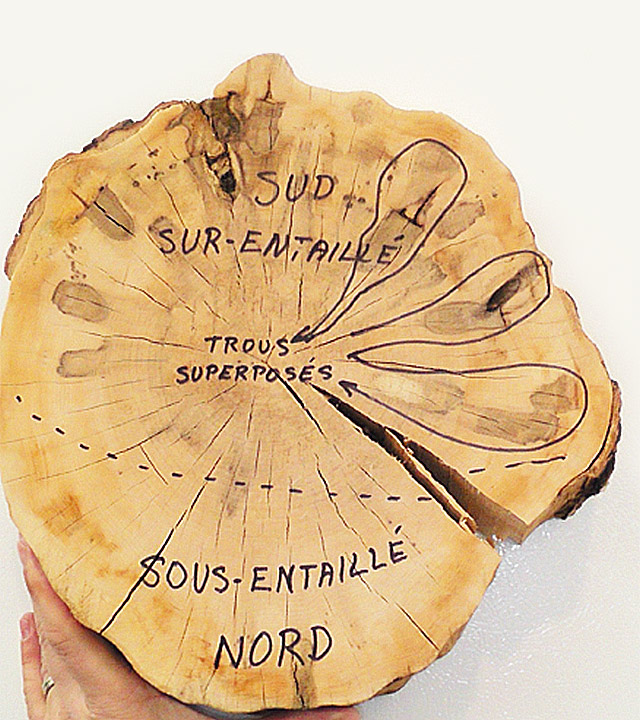 SUD
SUR-ENTAILLÉ
TROUS
SUPERPOSÉS
SOUS-ENTAILLÉ
NORD